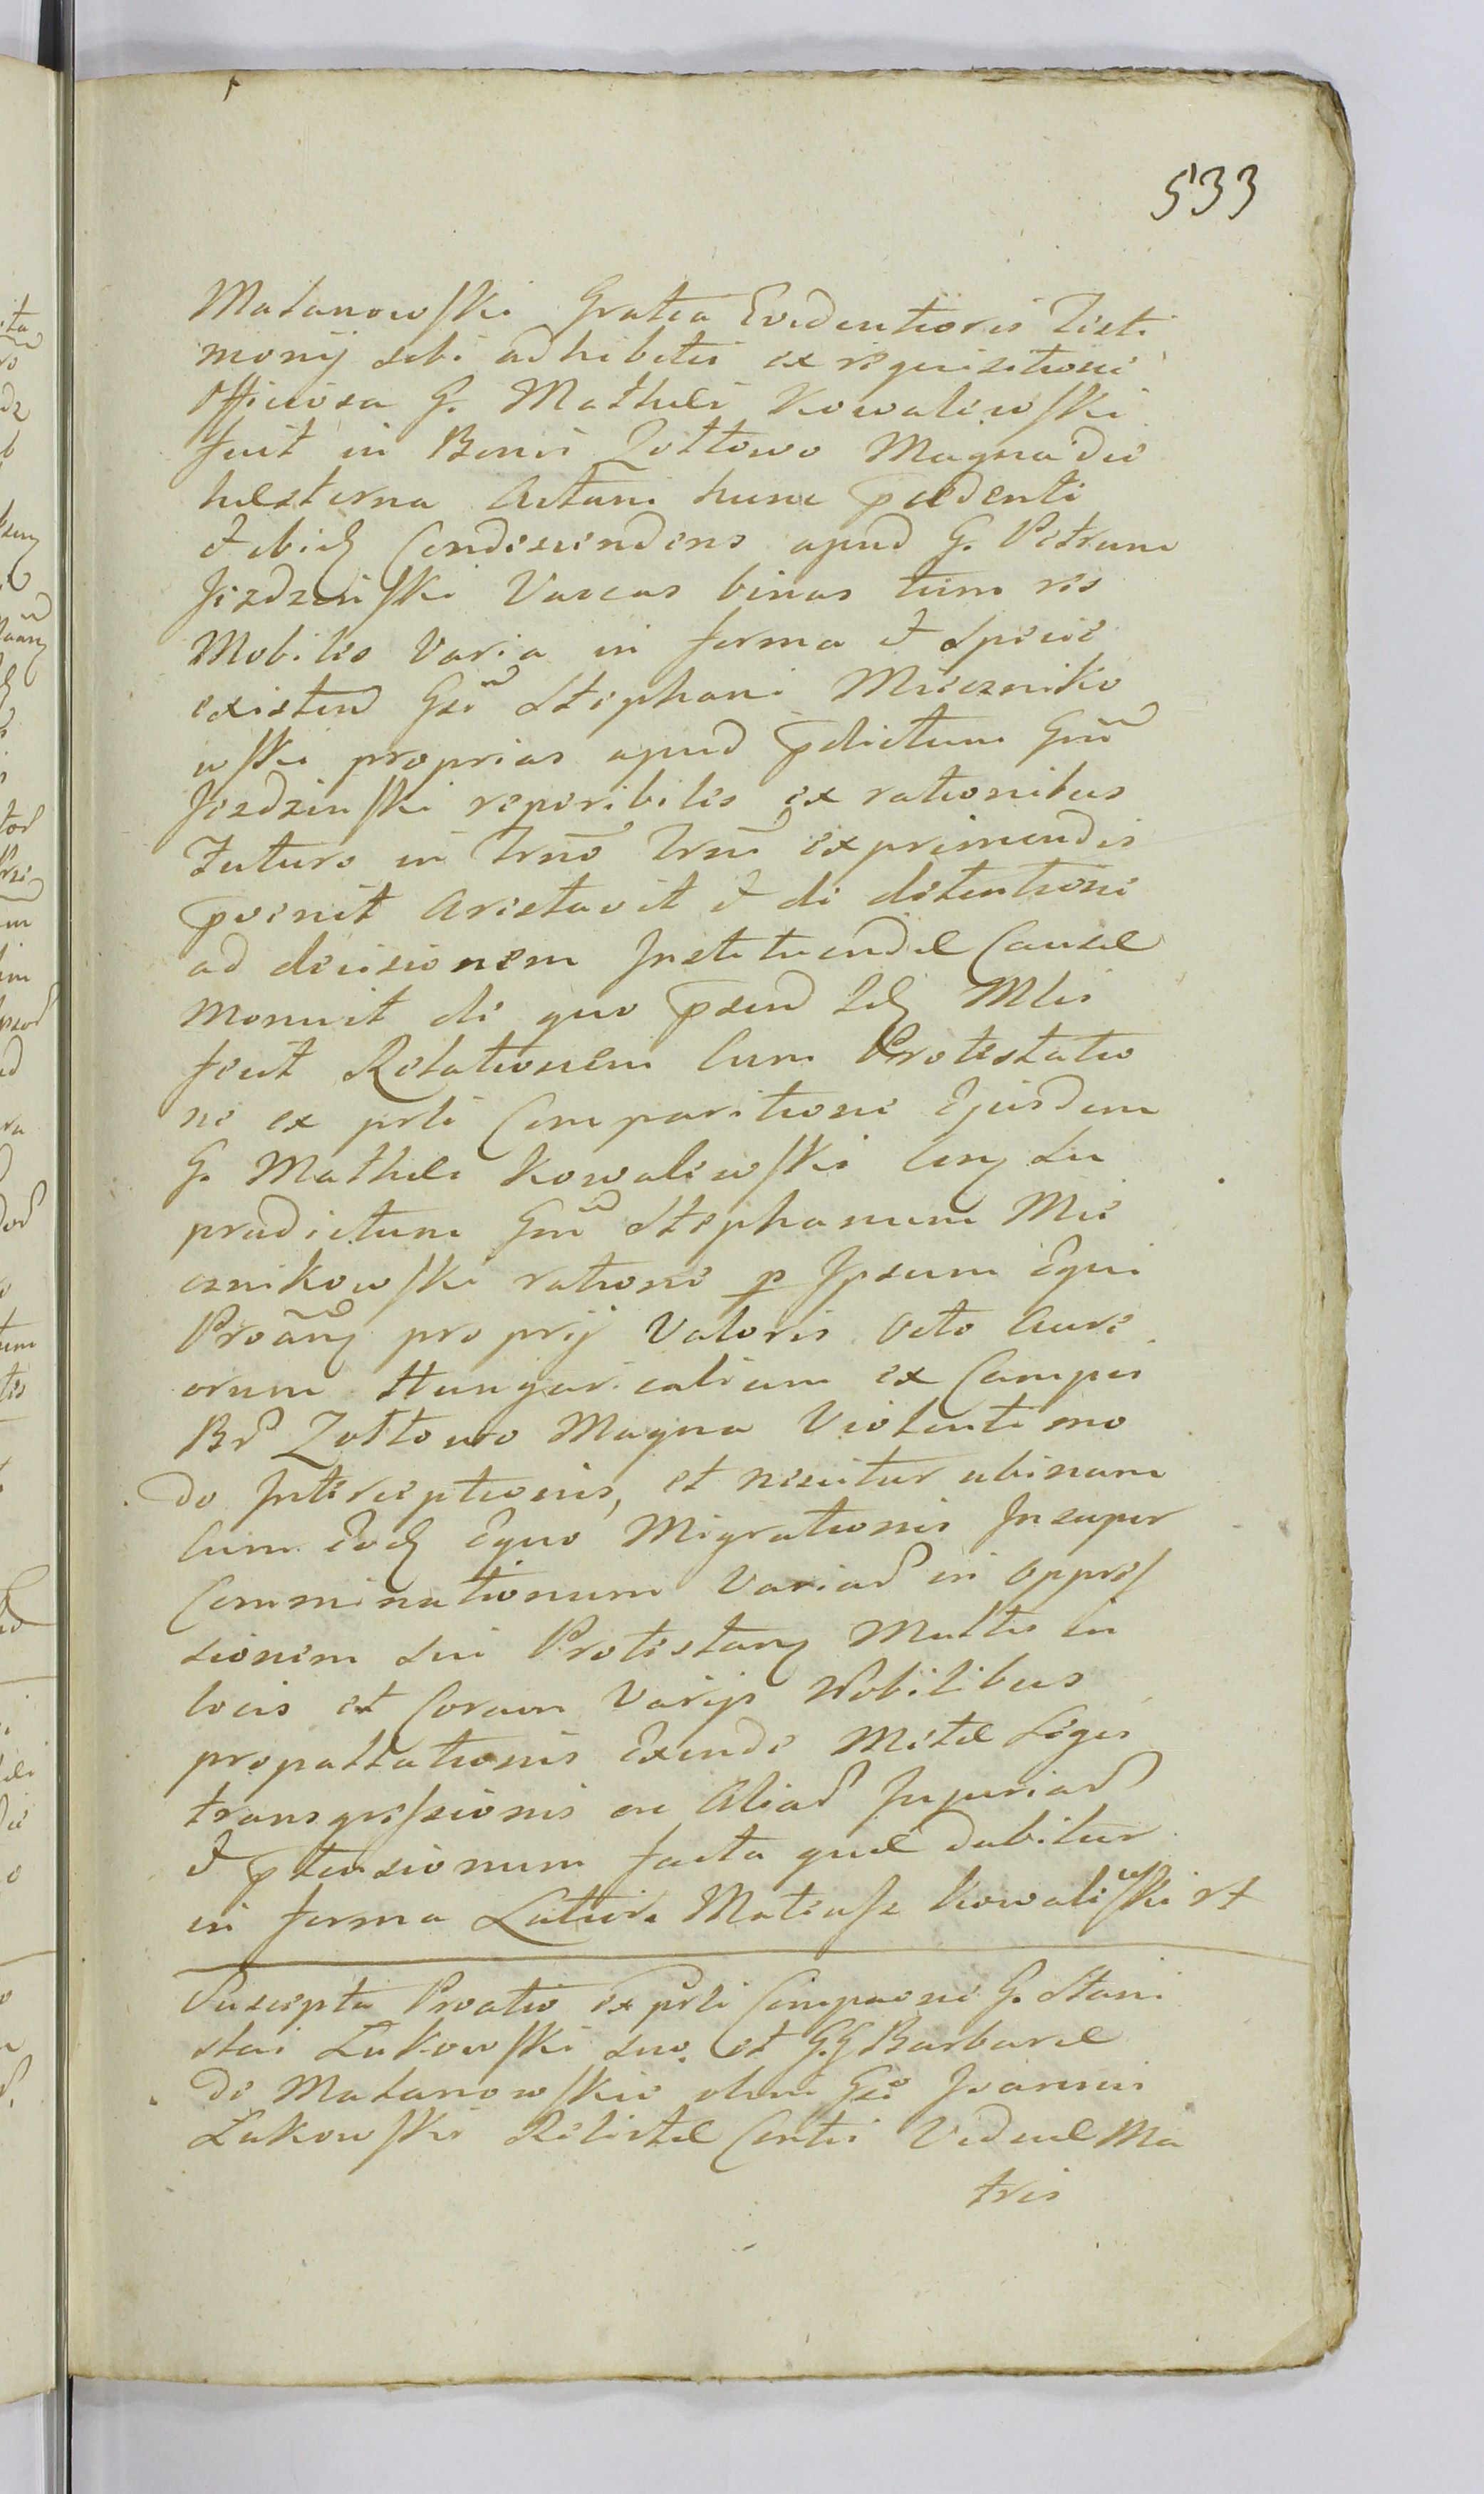 533
Matanowski Gratia Evidentioris Testi
monij sibi adhibitis ex requisitione
Officiosa G. Mathei Kowalewski
fuit in Bonis Zołtowo Magna die
hesterna Actum hunc pcedenti
& ibid Condescendens apud G. Petrum
Jezdzinski Vaccas binas tum res
Mobiles Varia in forma & Specie
existen Gsi Stephani Mieczniko
wski proprias apud pdictum Gm
Jezdzinski reperibiles ex rationibus
Futuro in Trno Trni exprimendis
pvenit Arestavit & de detentione
ad decisionem Instituendæ Causæ
monuit de quo psen Id Mlis
fecit Relationem Cum Protestatio
ne ex prti Comparitione Ejusdem
G. Mathei Kowalewski
pradictum Gm Stephanum Mie
cznikowski ratione p Ipsum Equi
proprij Valoris Octo Aure
orum Hungaricalium ex Campis
Br Zołtowo Magna Violenti mo
do Interceptionis, et nescitur ubinam
Cum Eod Equo Migrationis Insuper
Comminationum Variar in oppres
sionem sui Protestan Multis in
locis et Coram Varijs Nobilibus
propallationis Exinde Metæ Legis
transgressionis ac Aliar Injuriar
& ptensionum facta quæ dabitur
in forma Latiori Mateusz Kowalewski
Suscepta Proatio ex prti Compaone G. Stani
stai Łukowski suo et G.G Barbaræ
de Matanowskie olim Gsi Joannis
Łukowski Relictæ Csortis Viduæ Ma
tris